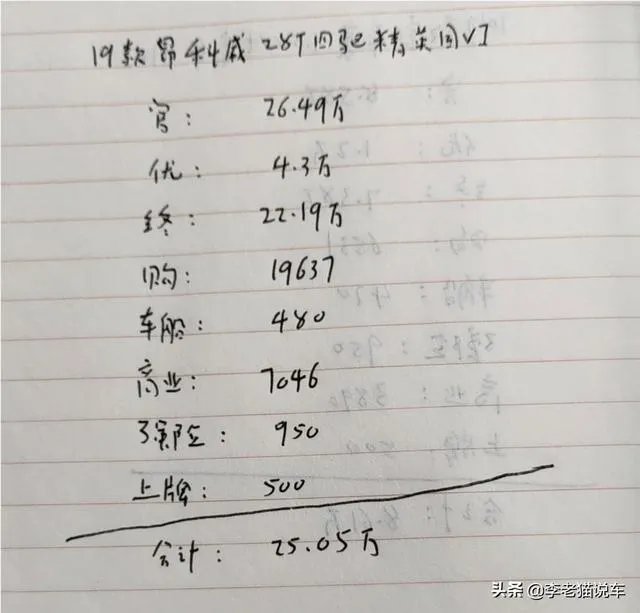 19款昂科威 28T四驱精英国VI
官: 26.49万
优: 4.3万
终: 22.19万
购: 19637
车船: 480
商业: 7046
强险: 950
上牌: 500
合计: 25.05万
头条 @李老猫说车